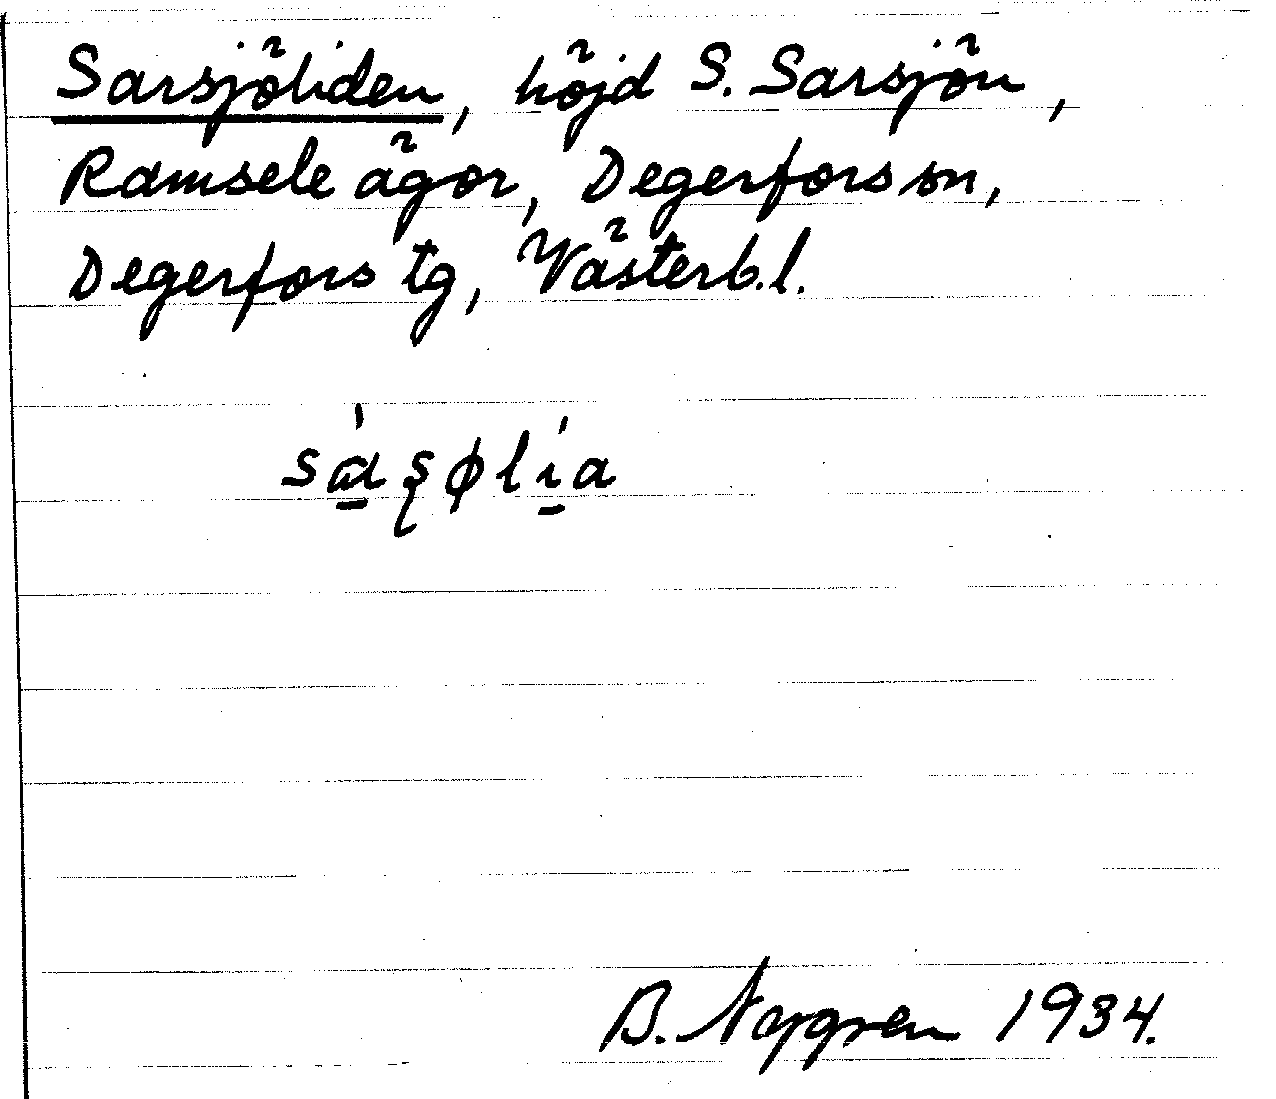 Sarsjöliden, höjd S. Sarsjön,
Ramsele ägor, Degerfors sn,
Degerfors tg, Västerb.l.
B. Nygren 1934.